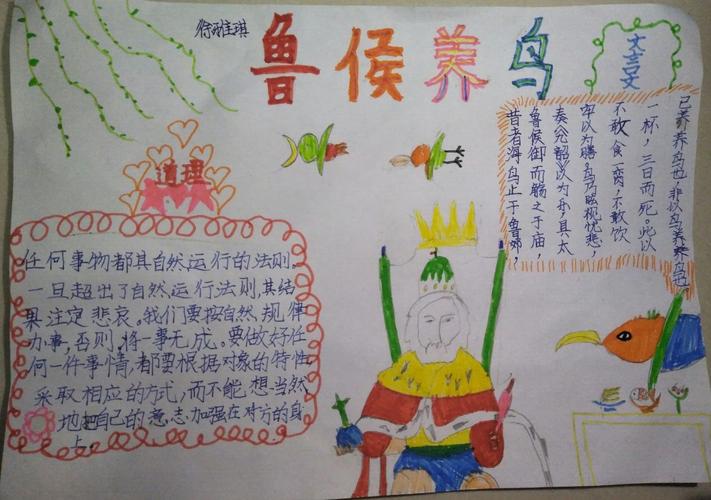 徐雅琪
鲁侯养鸟
文言文
昔者海鸟止于鲁郊,
鲁侯御而觞之于庙,
奏九韶以为乐,具太
牢以为膳。鸟乃眩视忧悲,
不敢食一脔,不敢饮
一杯,三日而死。此以
己养养鸟也,非以鸟养养鸟也。
道理
任何事物都其自然运行的法则。
一旦超出了自然运行法则,其结
果注定悲哀。我们要按自然规律
办事,否则,将一事无成。要做好任
何一件事情,都要根据对象的特性
采取相应的方式,而不能想当然
地把自己的意志加强在对方的身
上